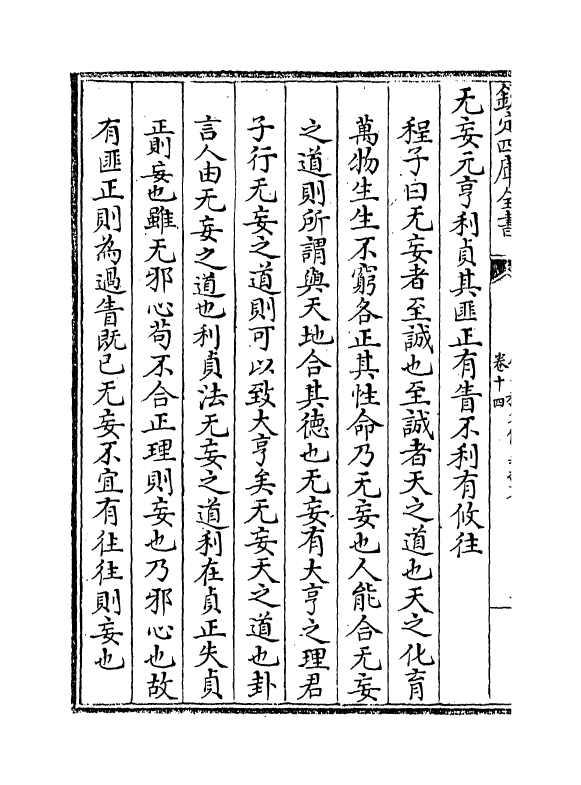 欽定四庫全書
卷十四
无妄元亨利貞其匪正有眚不利有攸往
程子曰无妄者至誠也至誠者天之道也天之化育
萬物生生不窮各正其性命乃无妄也人能合无妄
之道則所謂與天地合其徳也无妄有大亨之理君
子行无妄之道則可以致大亨矣无妄天之道也卦
言人由无妄之道也利貞法无妄之道利在貞正失貞
正則妄也雖无邪心苟不合正理則妄也乃邪心也故
有匪正則為過眚既已无妄不宜有往往則妄也